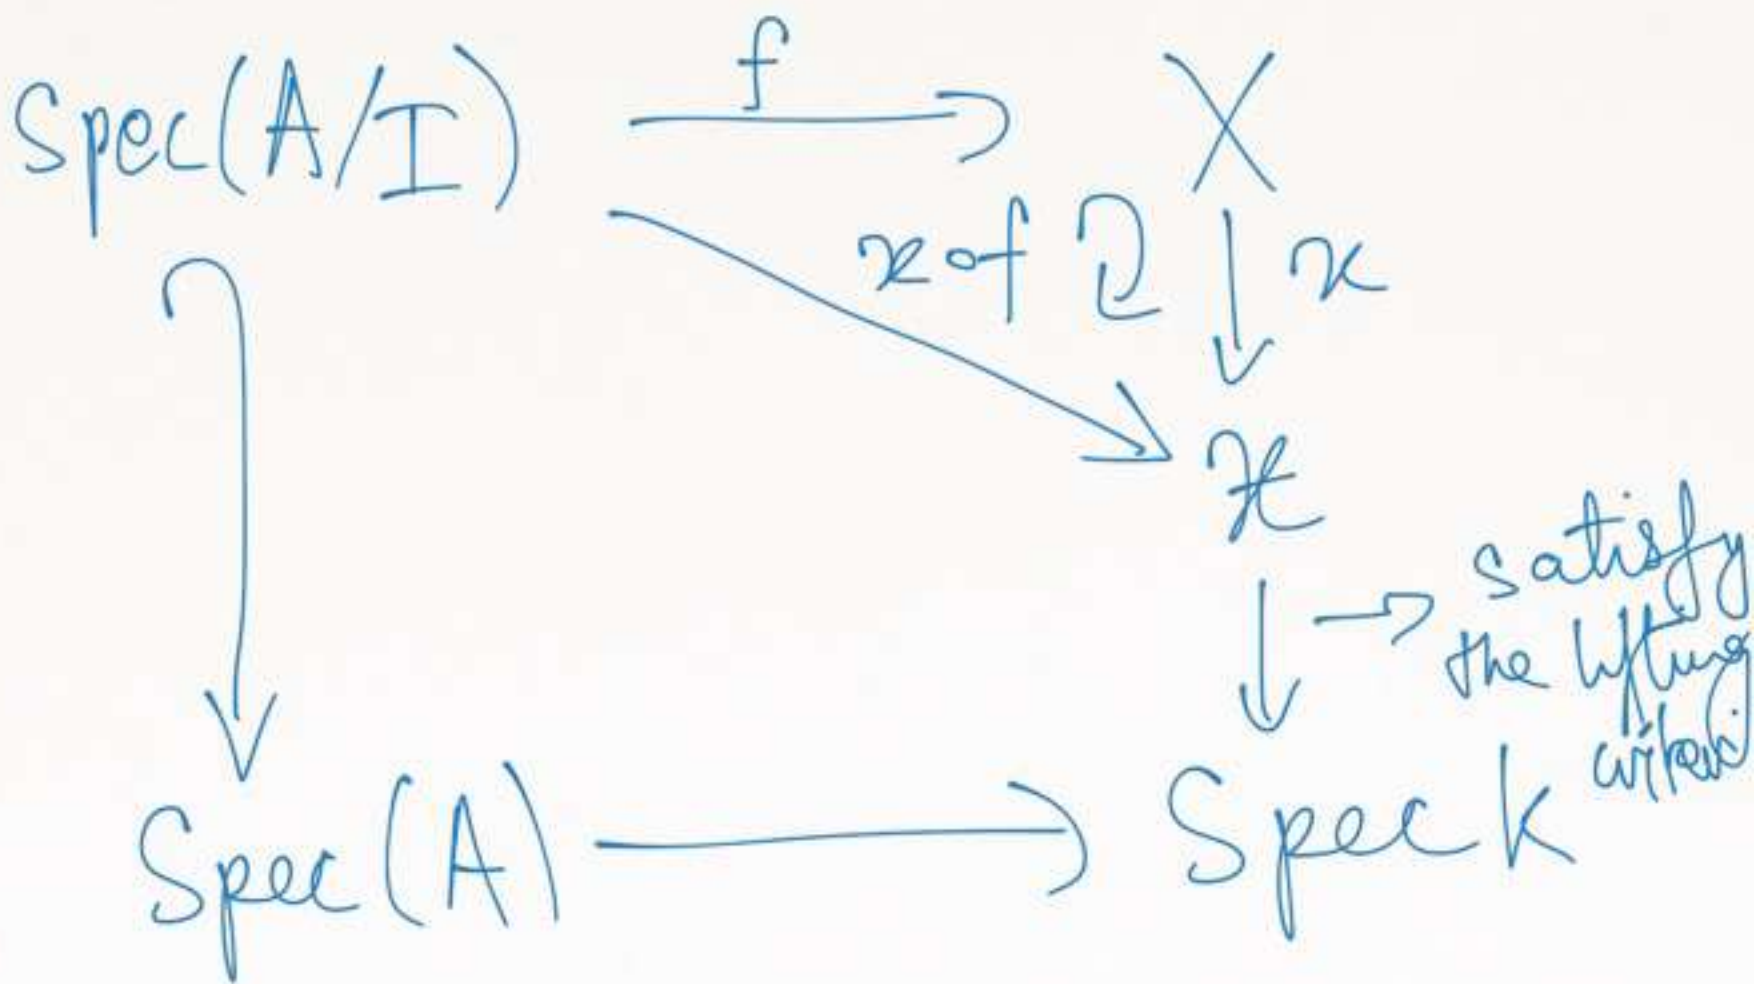 Spec(A/I) f X
x∘f x
𝒳
satisfy
the lifting
Spec(A) Spec k